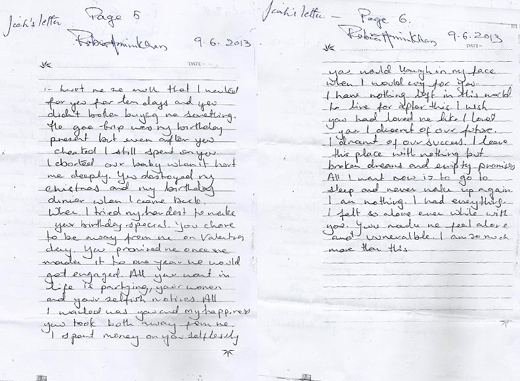 Jiah's letter
Page 5
9.6.2013
DATE
it hurt me so much that I waited
for you for ten days and you
didn't bother buying me something.
The Goa trip was my birthday
present but even after you
cheated I still spent on you
I aborted our baby when it hurt
me deeply. You destroyed my
christmas and my birthday
dinner when I came back.
When I tried my hardest to make
your birthday special. You chose
to be away from me on Valentines
day. You promised me once we
made it to one year we would
get engaged. All you want in
life is partying, your women
and your selfish motives. All
I wanted was you and my happiness
you took both away from me.
I spent money on you selflessly
Jiah's letter –
Page 6.
9.6.2013
DATE
you would laugh in my face
when I would cry for you
I have nothing left in this world
to live for after this. I wish
you had loved me like I loved
you I dreamt of our future.
I dreamt of our success. I leave
this place with nothing but
broken dreams and empty promises
All I want now is to go to
sleep and never wake up again
I am nothing. I had everything.
I felt so alone even while with
you. You made me feel alone
and vulnerable. I am so much
more than this.